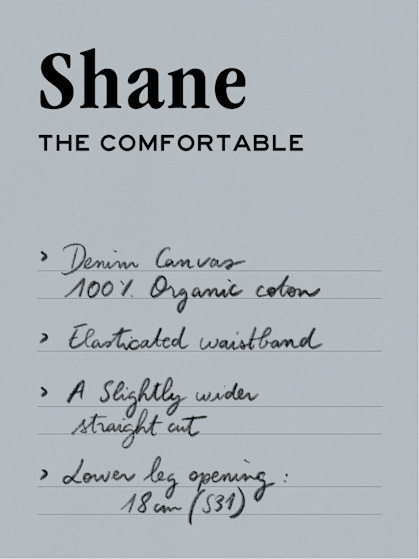 Shane
THE COMFORTABLE
> Denim Canvas
100% Organic coton
> Elasticated waistband
> A Slightly wider
straight cut
> Lower leg opening :
18 cm (S31)